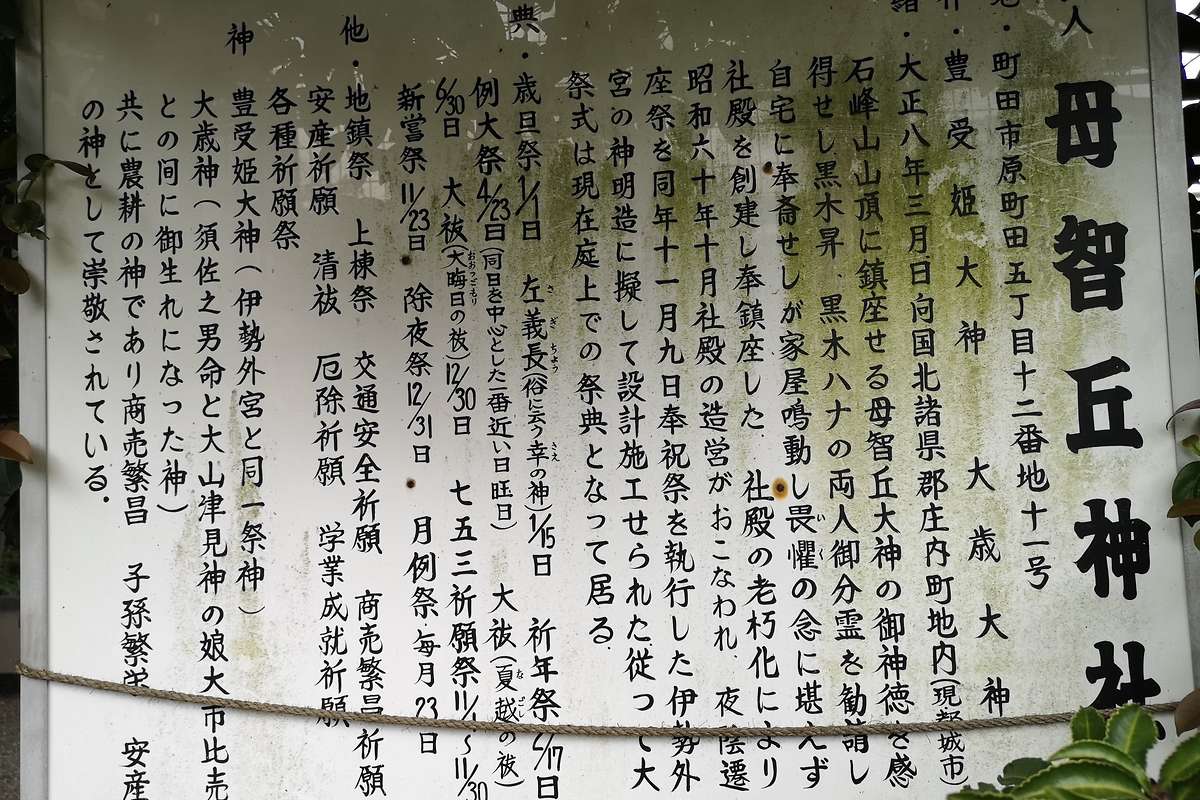 人 母智丘神社
地・町田市原町田五丁目十二番地十一号
豊受姫大神 大歳大神
緒・大正八年三月日向国北諸県郡庄内町地内(現都城市)
石峰山山頂に鎮座せる母智丘大神の御神徳を感
得せし黒木昇、黒木ハナの両人御分霊を勧請し
自宅に奉斎せしが家屋鳴動し畏懼の念に堪えず
いく
社殿を創建し奉鎮座した、社殿の老朽化により
昭和六十年十月社殿の造営がおこなわれ、夜陰遷
座祭を同年十一月九日奉祝祭を執行した伊勢外
宮の神明造に擬して設計施工せられた従って大
祭式は現在庭上での祭典となって居る.
典・歳旦祭1/1日 左義長(俗に云う幸の神)1/15日 祈年祭2/17日
さぎちょう さえ
例大祭4/23日(同日を中心とした一番近い日旺日) 大祓(夏越の祓)
なごし
6/30日 大祓(大晦日の祓)12/30日 七五三祈願祭11/1〜11/30
おおつごもり
新嘗祭11/23日 除夜祭12/31日 月例祭・毎月23日
他・地鎮祭 上棟祭 交通安全祈願 商売繁昌祈願
安産祈願 清祓 厄除祈願 学業成就祈願
各種祈願祭
神 豊受姫大神(伊勢外宮と同一祭神)
大歳神(須佐之男命と大山津見神の娘大市比売
との間に御生れになった神)
共に農耕の神であり商売繁昌 子孫繁栄 安産
の神として崇敬されている.